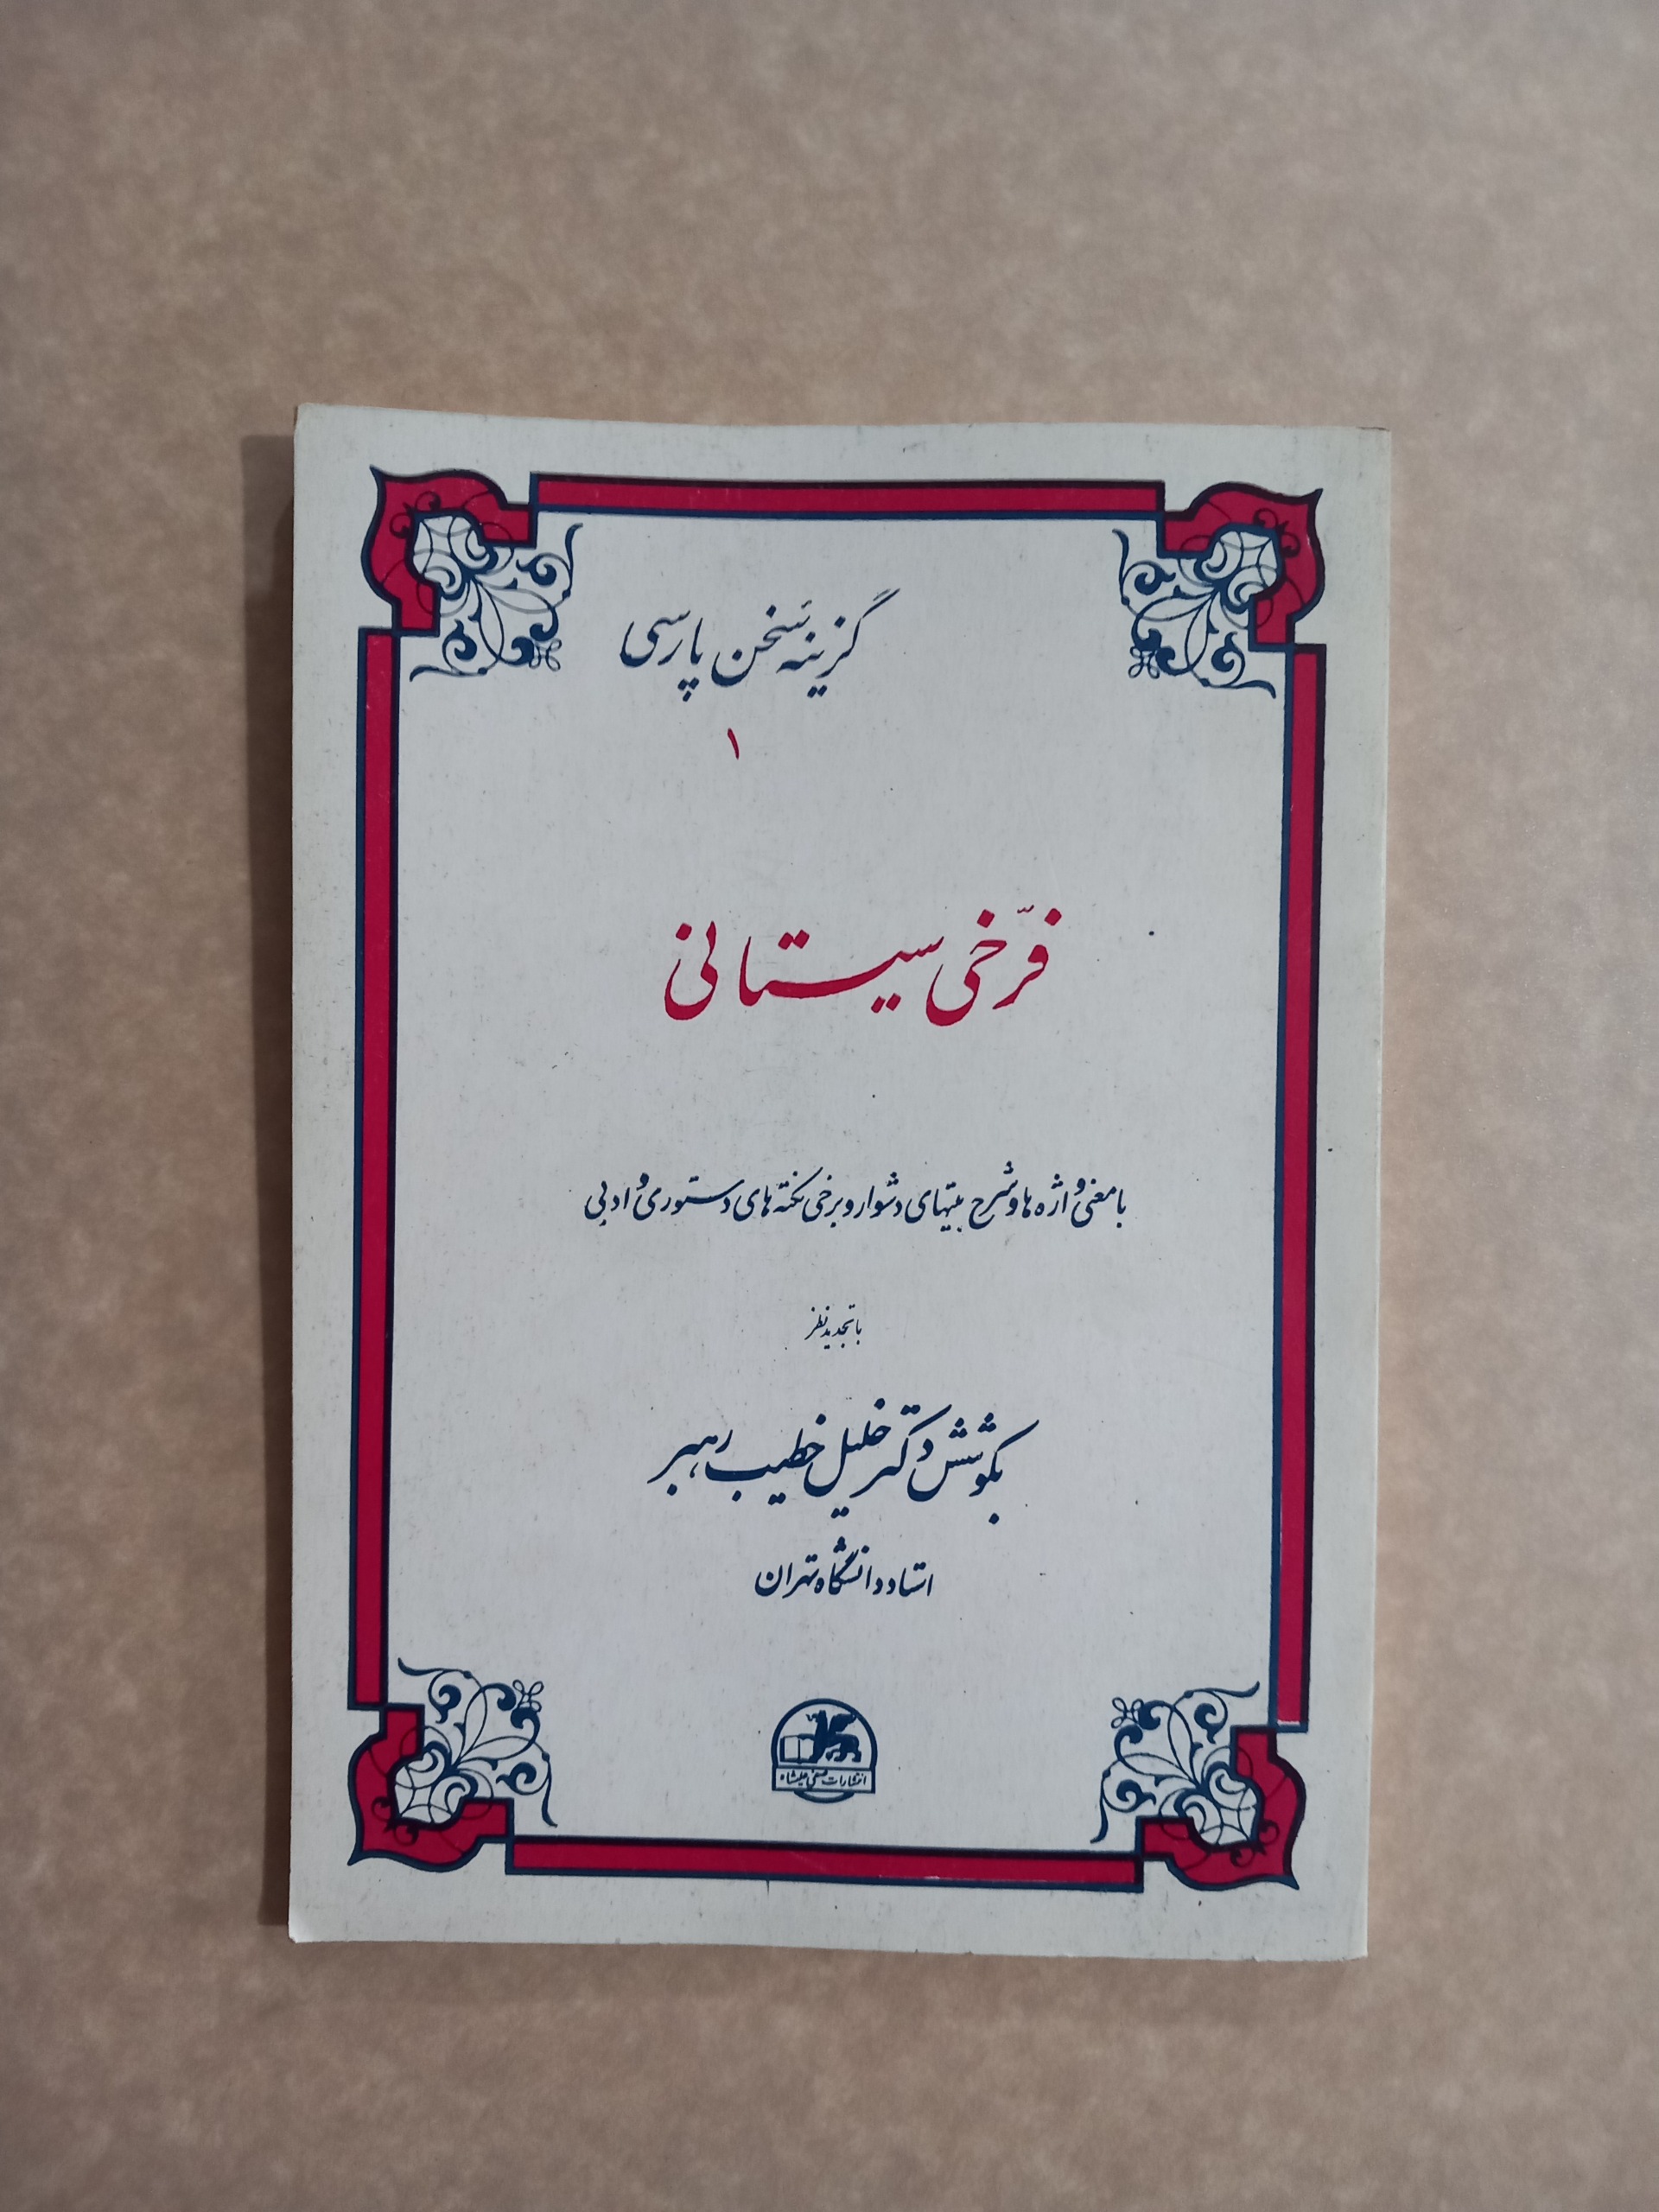 گزینهٔ سخن پارسی
۱
فرّخی سیستانی
با معنی واژه‌ها و شرح بیتهای دشوار و برخی نکته‌های دستوری و ادبی
با تجدید نظر
بکوشش دکتر خلیل خطیب رهبر
استاد دانشگاه تهران
انتشارات صفی علیشاه